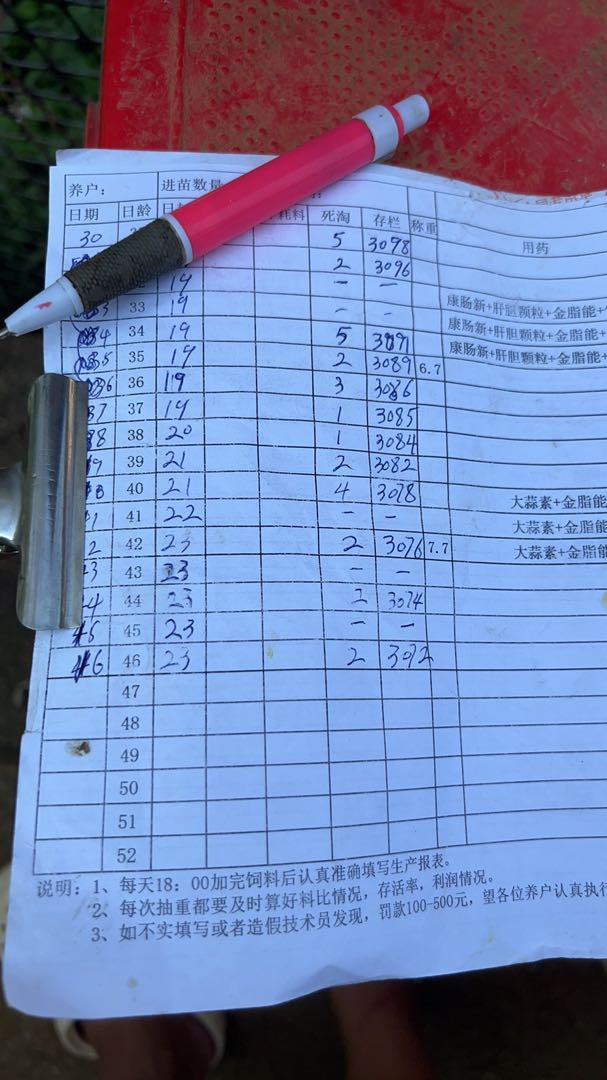 养户： 进苗数量
日期 日龄 耗料 死淘 存栏 称重 用药
30 5 3098
2 3096
19 — —
33 19 — — 康肠新+肝胆颗粒+金脂能+
34 19 5 3091 康肠新+肝胆颗粒+金脂能+
35 19 2 3089 6.7 康肠新+肝胆颗粒+金脂能+
36 19 3 3086
37 19 1 3085
38 20 1 3084
39 21 2 3082
40 21 4 3078 大蒜素+金脂能
41 22 — — 大蒜素+金脂能
42 23 2 3076 7.7 大蒜素+金脂能
43 23 — —
44 23 2 3074
45 23 — —
46 46 23 2 3072
47
48
49
50
51
52
说明：1、每天18：00加完饲料后认真准确填写生产报表。
2、每次抽重都要及时算好料比情况，存活率，利润情况。
3、如不实填写或者造假技术员发现，罚款100-500元，望各位养户认真执行